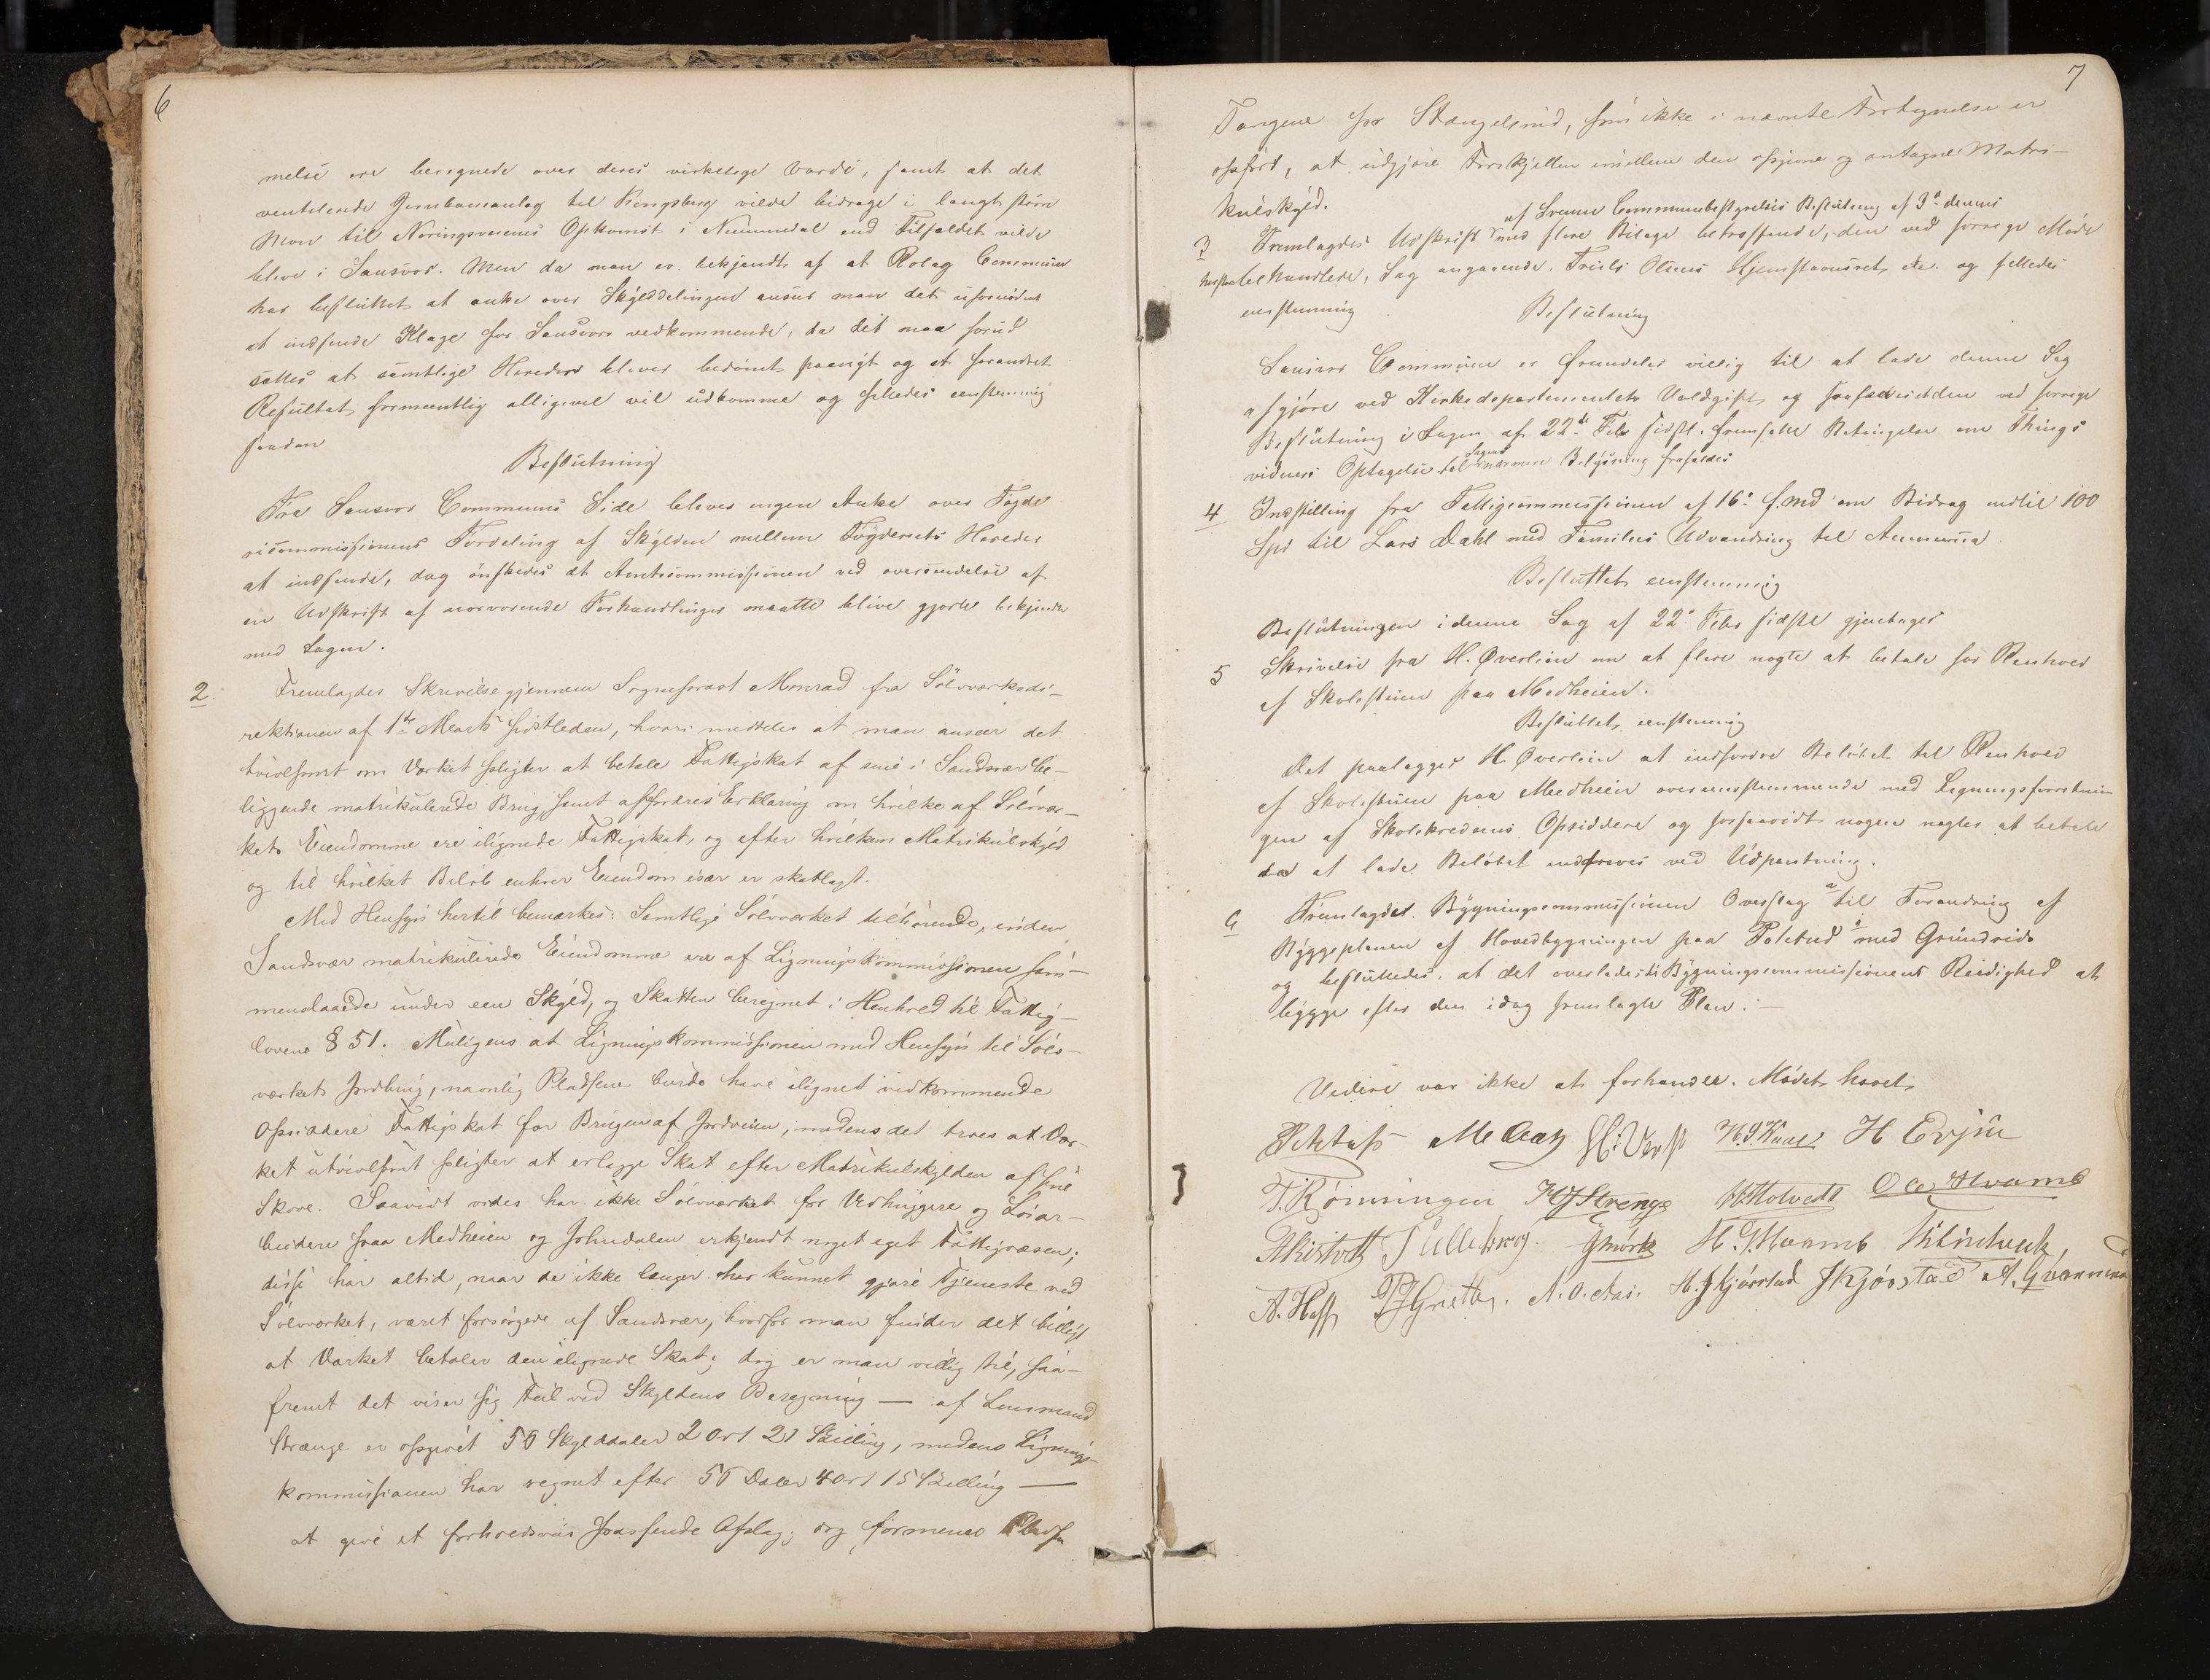 6
melse ere beregnede over deres virkelige Værdi, samt at det
ventilerede Jernbaneanlæg til Kongsberg vilde bidrage i langt større
Mon til Næringsveienes Opkomst i Nummedal end Tilfældet vilde
blive i Sansvær. Men da man er bekjendt af at Rolag Commune
har besluttet at anke over Skylddelingen ansees man det ufornødent
at indsende Klage for Sansværs vedkommende, da det maa forud
sættes at samtlige Hereder bliver bedømt paanyt og et forandret
Resultat formeentlig alligevel vil udkomme og fattedes eenstemmig
saadan
Beslutning
Fra Sansvær Communes Side bliver ingen Anke over Fogde
ricommissionens Fordeling af Skylden mellem Fogderiets Hereder
at indsende, dog ønskedes at Amtscommissionen ved oversendelse af
en Udskrift af nærværende Forhandlinger maatte blive gjort bekjendt
med Sagen.
2. Fremlagdes Skrivelse gjennem Sogneprast Monrad fra Sölvværksdi-
rektionen af 1ste Marts sidstleden, hvori meddeles at man anseer det
tvivlsomt om Værket pligter at betale Fattigskat af sine i Sandsvær be-
liggende matrikulerede Brug, samt affordres Erklæring om hvilke af Sölvvær-
kets Eiendomme ere ilignede Fattigskat, og efter hvilken Matrikulskyld
og til hvilket Belöb enhver Eiendom især er skatlagt.
Med Hensyn hertil bemærkes: Samtlige Sölvværket tilhörende, inden
Sandsvær matrikulerede Eiendomme ere af Ligningskommissionen sam-
menslaaede under een Skyld, og Skatten beregnet i Henhold til Fattig-
lovens § 51. Muligens at Ligningskommissionen med Hensyn til Sölv-
værkets Jordbrug, navnlig Pladsene burde have ilignet vedkommende
Opsiddere Fattigskat for Brugen af Jordveien, medens det troes at Vær-
ket utvivlsomt pligter at erlægge Skat efter Matrikulskylden af sine
Skove. Saavidt vides har ikke Sölvværket for Vedhuggere og Löiar-
beidere paa Medheien og Johnsdalen erkjendt noget eget Fattigvæsen;
disse har altid, naar de ikke længer har kunnet gjöre Tjeneste ved
Sölvværket, været forsörgede af Sandsvær, hvorfor man finder det billigt
at Værket betaler den ilignede Skat; dog er man villig til, saa-
fremt det viser sig Feil ved Skyldens Beregning — af Lensmand
Strænge er opgivet 56 Skylddaler 2 Ort 21 Skilling, medens Lignings-
kommissionen har regnet efter 56 Daler 4 Ort 15 Skilling —
at give et forholdsvis passende Afslag, dog formenes Pladsen
7
Tangene for Stængelsrud, som ikke i nævnte Fortegnelse er
opført, at udgjøre Forskjellen imellem den opgivne og antagne Matri-
kulskyld.
af Svene Communebestyrelses Beslutning af 3d dennes
3 Fremlagdes Udskrift med flere Bilage betræffende, den ved forrige Møde
behandlede, Sag angaaende Truls Olsens Hjemstavnsret, etc. og fattedes
eenstemmig
Beslutning
Sansvær Commune er fremdeles villig til at lade denne Sag
afgjøre ved Kirkedepartementets Voldgift, og den ved forrige
Beslutning i Sagen af 22de Febr sidstl. fremsatte Betingelse om Things
vidners Optagelse til Sagens nærmere Belysning frafaldes
4 Indstilling fra Fattigcommissionen af 16d f. Md om Bidrag indtil 100
Spd til Lars Dahl med Families Udvandring til Amerika
Besluttet eenstemmig
Beslutningen i denne Sag af 22d Febr sidstl gjentages
5 Skrivelse fra H. Øverlien om at flere nægte at betale for Renhold
af Skolestuen paa Medheien.
Besluttet eenstemmig
Det paalægges H. Øverlien at indfordre Beløbet til Renhold
af Skolestuen paa Medheien overeensstemmende med Ligningsforretnin
gen af Skolekredsens Opsiddere og forsaavidt nogen negter at betale
da at lade Beløbet inddrives ved Udpantning.
6 Fremlagdes Bygningscommissionens Overslag til Forandring af
Byggeplanen af Hovedbygningen paa Foletud med Grundrids
og besluttedes at det overlades til Bygningscommissionens Raadighed at
bygge efter den idag fremlagte Plan.—
Videre var ikke at forhandle. Mødet hævet.
T. Rönningen H J Strenge H Holtvedt O A Hvamb
H. G. Hvamb
A. Hoff A. O. Aas. H. J Kjörstad J Kjörstad